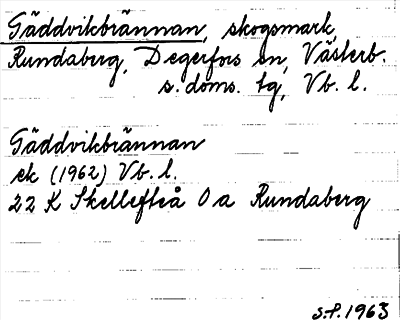 Gäddvikbrännan, skogsmark,
Rundaberg, Degerfors sn, Västerb.
s. doms. tg, Vb. l.
Gäddvikbrännan
ek (1962) Vb. l.
22 K Skellefteå 0 a Rundaberg
S.P. 1963